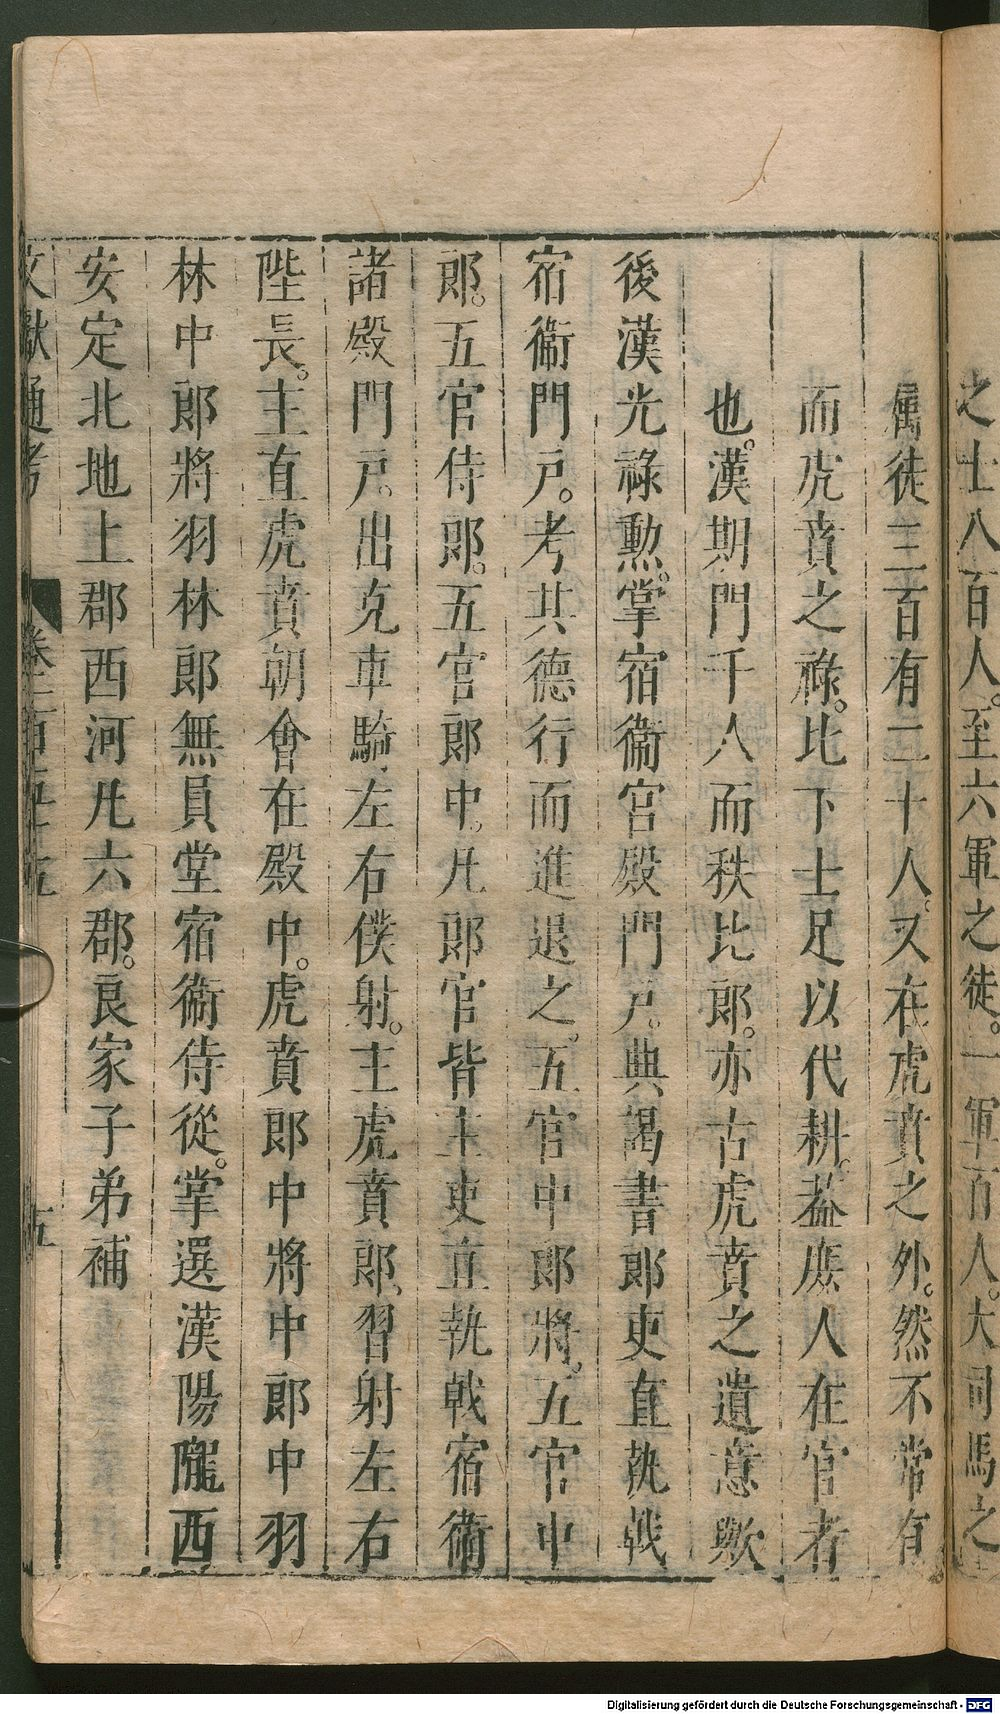 之士八百人。至六軍之徒。一軍百人。大司馬之
屬徒三百有二十人。又在虎賁之外。然不常有
而虎賁之祿。比下士足以代耕。葢庶人在官者
也。漢期門千人而秩比郎。亦古虎賁之遺意歟
後漢光祿勲。掌宿衞宮殿門戸。典謁書郎吏直執戟
宿衞門戸。考其德行而進退之。五官中郎將。五官中
郎。五官侍郎。五官郎中。凡郎官皆主吏直執戟宿衞
諸殿門戸。出充車騎。左右僕射。主虎賁郎。習射左右
陛長。主直虎賁朝會在殿中。虎賁郎中將中郎中羽
林中郎將羽林郎無員堂宿衞侍從。掌選漢陽隴西
安定北地上郡西河凡六郡。良家子弟補
文獻通考 卷一百五十五 五
Digitalisierung gefördert durch die Deutsche Forschungsgemeinschaft - DFG